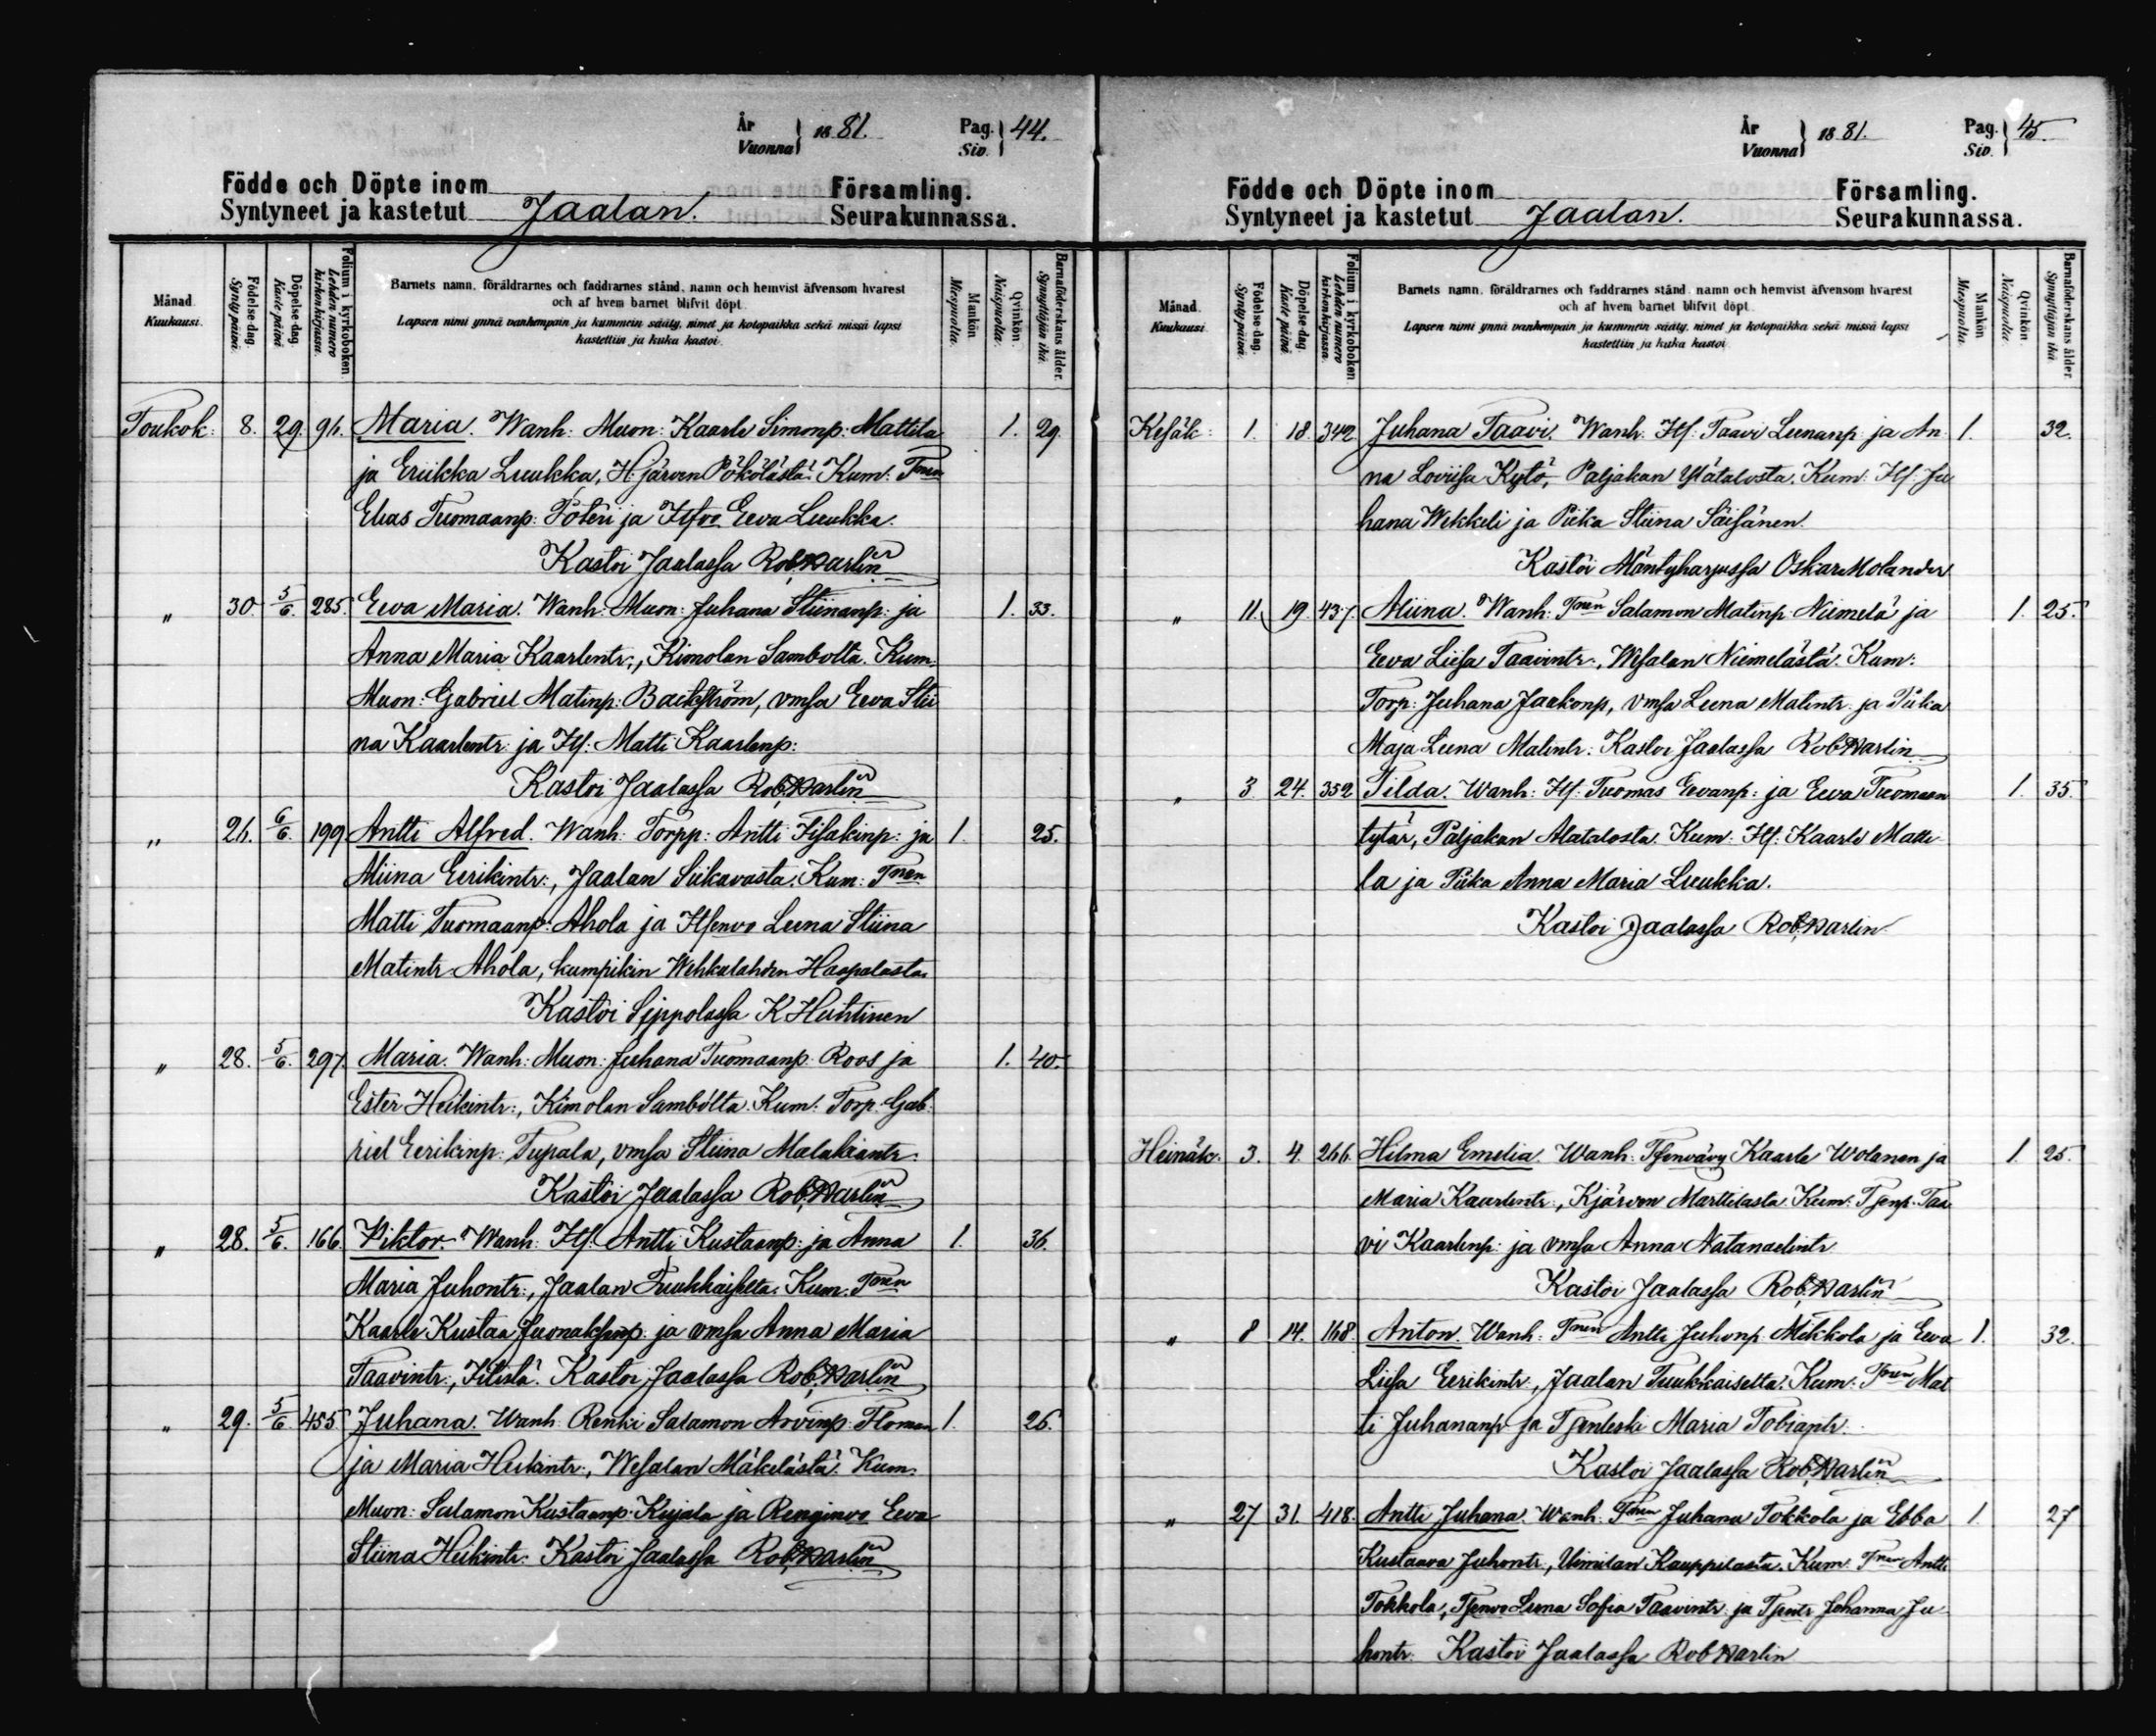 År
Vuonna } 1881. Pag.
Siv. } 44.
Födde och Döpte inom Församling.
Syntyneet ja kastetut Jaalan. Seurakunnassa.
Månad. Kuukausi.
Födelse-dag. Synty päivä.
Döpelse-dag. Kaste päivä
Folium i kyrkoboken Lehden numero kirkonkirjassa.
Barnets namn, föräldrarnes och faddrarnes stånd, namn och hemvist äfvensom hvarest
och af hvem barnet blifvit döpt.
Lapsen nimi ynnä vanhempain ja kummein sääty, nimet ja kotopaikka sekä missä lapsi
kastettiin ja kuka kastoi.
Mankön Miespuolta.
Qvinkön. Naispuolta.
Barnaföderskans ålder. Synnyttäjän ikä.
Toukok: 8. 29. 91. Maria. Wanh: Muon: Kaarle Simonp: Mattila 1. 29.
ja Eriikka Luukka, H.järven Pökölästä. Kum: Tnen
Elias Tuomaanp: Pöteri ja Itsvo Eeva Luukka.
Kastoi Jaalassa Rob. Harlin
" 30. 5/6. 285. Eeva Maria. Wanh: Muon: Juhana Stiinanp: ja 1. 33.
Anna Maria Kaarlentr:, Kimolan Sambolta. Kum.
Muon: Gabriel Matinp: Backström, vmsa Eeva Stii
na Kaarlentr: ja Itl: Matti Kaarlenp:
Kastoi Jaalassa Rob. Harlin
" 21. 6/6. 199 Antti Alfred. Wanh: Torpp: Antti Iisakinp: ja 1. 25.
Miina Eerikintr:, Jaalan Siikavasta. Kum: Tnen
Matti Tuomaanp: Ahola ja Itsenvo Leena Stiina
Matintr Ahola, kumpikin Wehkalahden Haapalasta
Kastoi Sippolassa K Huhtinen
" 28. 5/6. 297. Maria. Wanh: Muon: Juhana Tuomaanp: Roos ja 1. 40.
Ester Heikintr:, Kimolan Sambolta. Kum: Torp. Gab
riel Eerikinp: Tupala, vmsa Stiina Malakiantr.
Kastoi Jaalassa Rob. Harlin
" 28. 5/6. 166. Viktor. Wanh: Itl: Antti Kustaanp: ja Anna 1. 36.
Maria Juhontr:, Jaalan Tuukkaiselta. Kum. Tnen
Kaarle Kustaa Juonaksenp: ja vmsa Anna Maria
Taavintr:, Kastoi Jaalassa Rob. Harlin
" 29. 5/6. 455 Juhana. Wanh: Renki Salamon Arvinp: Floman 1. 26.
ja Maria Heikintr:, Wesalan Mäkelästä. Kum.
Muon: Salamon Kustaanp: Kujala ja Renginvo Eeva
Stiina Heikintr: Kastoi Jaalassa Rob. Harlin
År
Vuonna } 1881. Pag.
Siv. } 45
Födde och Döpte inom Församling.
Syntyneet ja kastetut Jaalan. Seurakunnassa.
Månad. Kuukausi.
Födelse-dag. Synty päivä.
Döpelse-dag. Kaste päivä
Folium i kyrkoboken Lehden numero kirkonkirjassa.
Barnets namn, föräldrarnes och faddrarnes stånd, namn och hemvist äfvensom hvarest
och af hvem barnet blifvit döpt.
Lapsen nimi ynnä vanhempain ja kummein sääty, nimet ja kotopaikka sekä missä lapsi
kastettiin ja kuka kastoi.
Mankön Miespuolta.
Qvinkön. Naispuolta.
Barnaföderskans ålder. Synnyttäjän ikä.
Kesäk: 1. 18. 342 Juhana Taavi. Wanh: Itl: Taavi Leenanp: ja An 1. 32.
na Loviisa Kytö, Paljakan Ylätalosta. Kum: Itl: Ju
hana Wekkeli ja Piika Stiina Säisänen.
Kastoi Mäntyharjussa Oskar Molander
" 11. 19. 437. Miina. Wanh: Tnen Salamon Matinp: Niemelä ja 1. 25.
Eeva Liisa Taavintr:, Wesalan Niemelästä. Kum:
Torp: Juhana Jaakonp, vmsa Leena Matintr: ja Piika
Maja Leena Matintr: Kastoi Jaalassa Rob. Harlin
" 3. 24. 352 Tilda. Wanh: Itl: Tuomas Eevanp: ja Eeva Tuomaan 1. 35.
tytär, Paljakan Alatalosta. Kum: Itl: Kaarle Matti
la ja Piika Anna Maria Luukka.
Kastoi Jaalassa Rob. Harlin
Heinäk: 3. 4. 266. Hilma Emelia. Wanh: Tsenvävy Kaarle Wolanen ja 1. 25.
Maria Kaarlentr:, Kjärven Marttilasta. Kum: Tsenp: Taa
vi Kaarlenp: ja vmsa Anna Natanaelintr
Kastoi Jaalassa Rob. Harlin
" 8 14. 168 Anton. Wanh: Tnen Antti Juhonp: Mikkola ja Eeva 1. 32.
Liisa Eerikintr:, Jaalan Tuukkaiselta. Kum: Tnen Mat
ti Juhananp: ja Tsenleski Maria Tobiantr.
Kastoi Jaalassa Rob. Harlin
" 27 31. 418. Antti Juhana. Wanh. Tnen Juhana Tokkola ja Ebba 1. 27
Kustaava Juhontr:, Uimilan Kauppilasta. Kum: Tnen Antti
Tokkola, Tsenvo Leena Sofia Taavintr: ja Tsentr Johanna Ju
hontr: Kastoi Jaalassa Rob Harlin